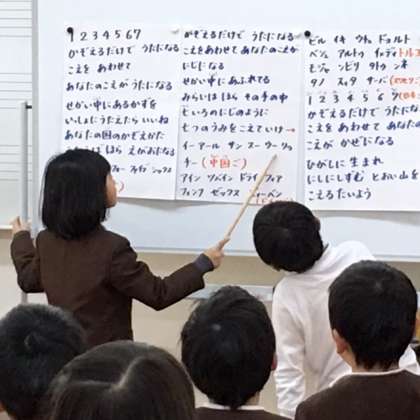 1 2 3 4 5 6 7
かぞえるだけで うたになる
こえを あわせて
あなたのこえが うたになる
せかい中に あるかずを
いっしょにうたえたら いいね
あなたの国の かぞえかた
ほら えがおになる
フォー ファイブ シックス
かぞえるだけで うたになる
こえをあわせて あなたのこえが
にじになる
せかい中に あふれてる
みらいは ほら その手の中
七いろのにじのように
七つのうみをこえていけ→
イー アール サン スー ウー リゥ
チー (中国ご)
アイン ツバイン ドライ フィア
フュンフ ゼックス ジィーベン
ビル イキ ウチ ドゥルト
ベシュ アルトゥ イェディ(トルコ
モジャ ンビリ タトゥ ンネ
タノ スィタ サーバ
1 2 3 4 5 6 7
かぞえるだけで うたになる
こえを あわせて あなたの
こえが かぜになる
ひがしに 生まれ
にしにしずむ とおい山を
こえるたいよう